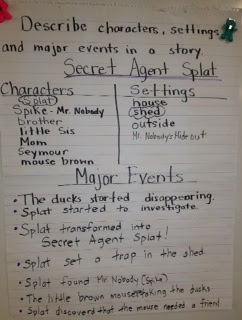 Describe characters, settings,
and major events in a story.
Secret Agent Splat
Characters
Splat
Spike - Mr. Nobody
brother
little Sis
Mom
Seymour
mouse brown
Settings
house
shed
outside
Mr. Nobody's Hide out
Major Events
• The ducks started disappearing.
• Splat started to investigate.
• Splat transformed into
Secret Agent Splat!
• Splat set a trap in the shed.
• Splat found Mr. Nobody (Spike)
• The little brown mouse taking the ducks
• Splat discoverd that the mouse needed a friend